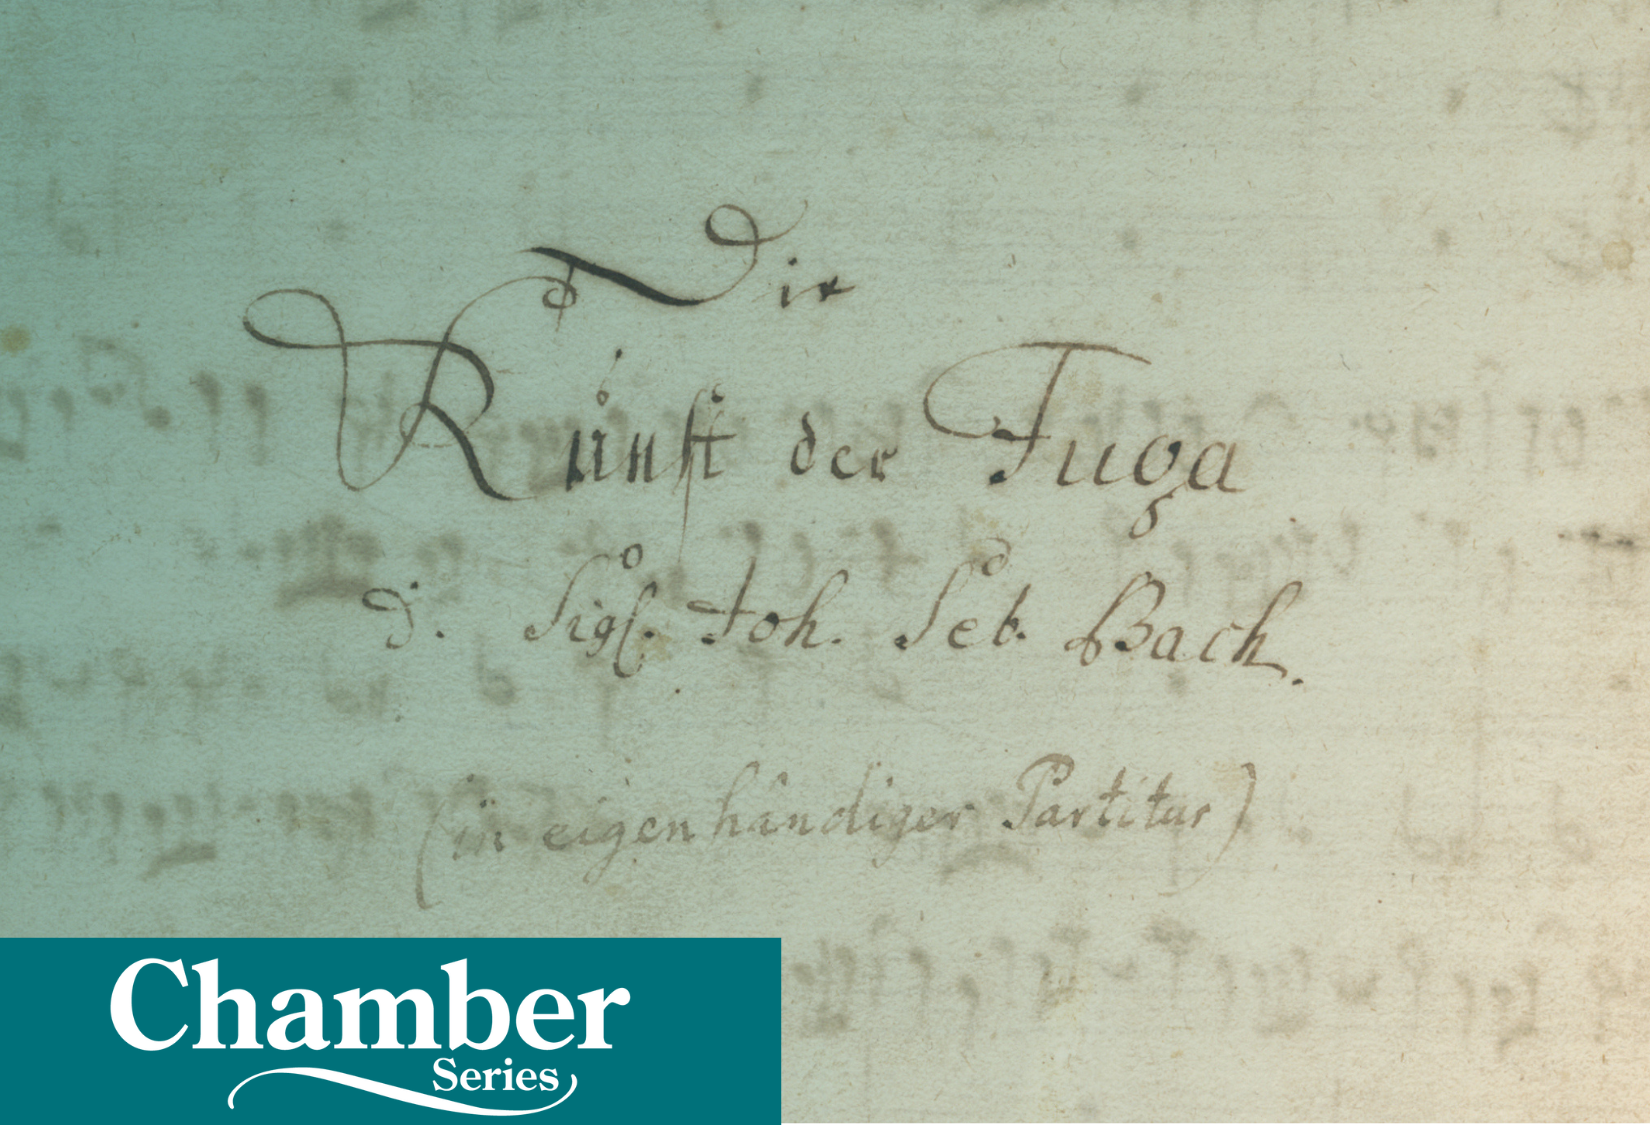 Die
Kunst der Fuga
d. Sigl. Joh. Seb. Bach.
(in eigenhändiger Partitur)
Chamber
Series